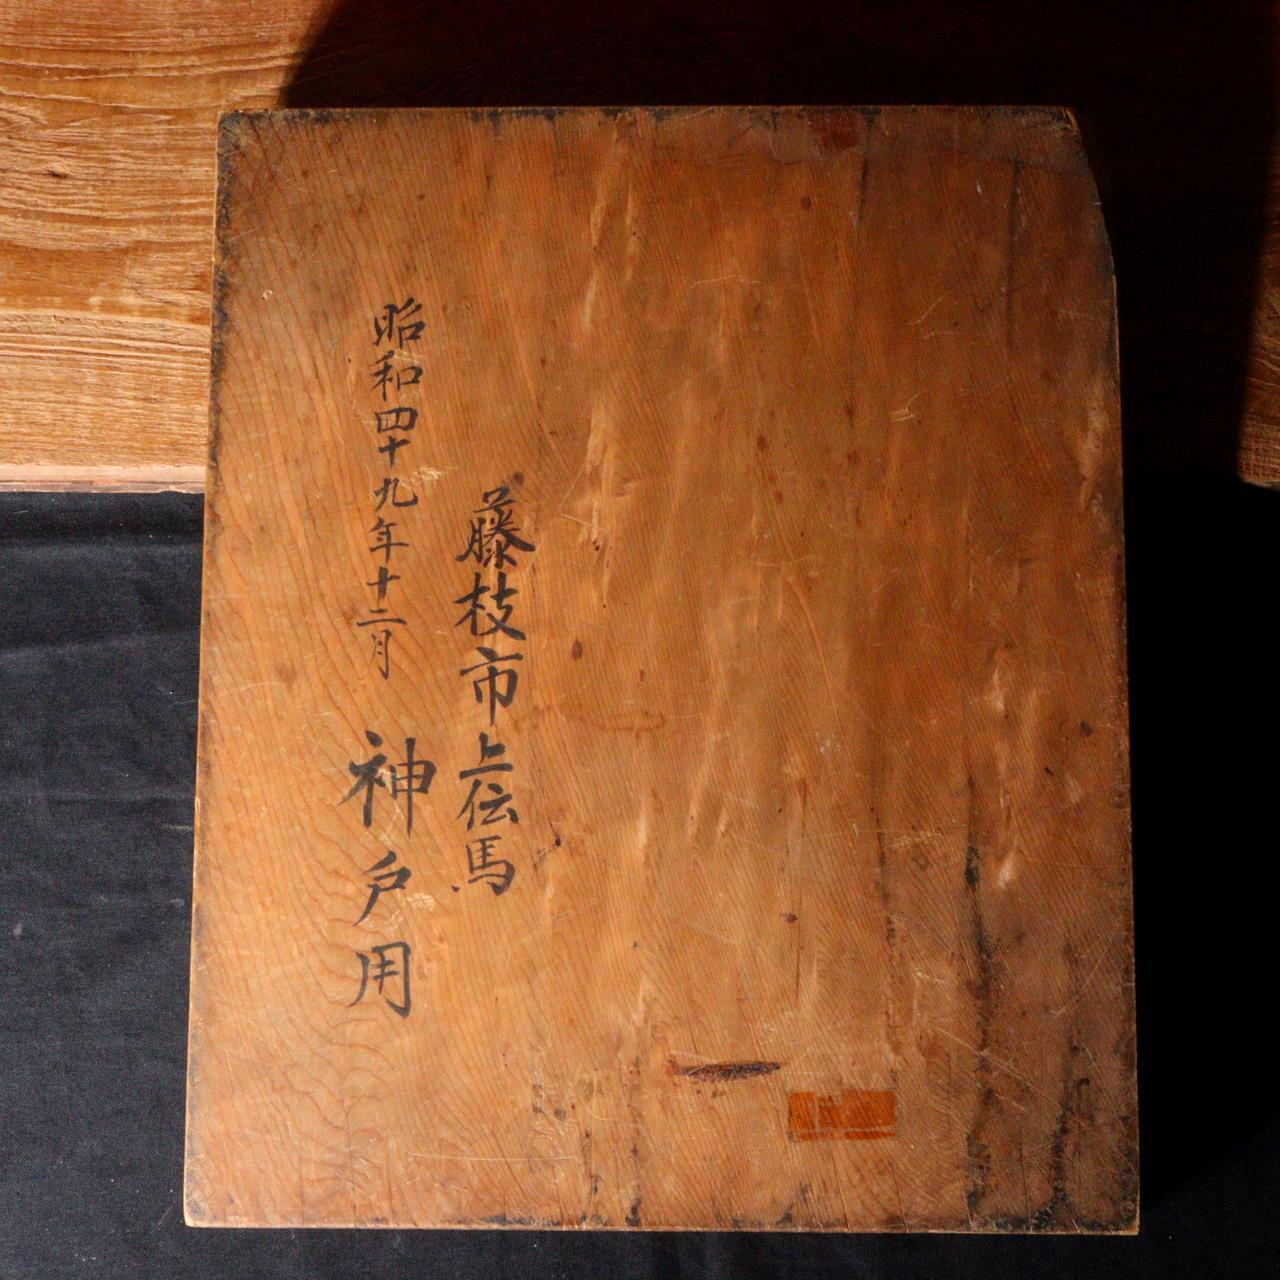 藤枝市上伝馬
昭和四十九年十二月
神戸用